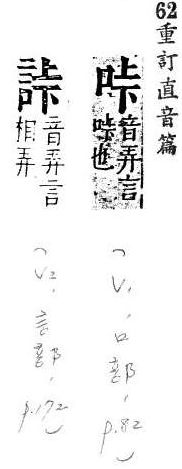 62重訂直音篇
音弄言
也
(V1,口部,p.82)
音弄言
相弄
(V2,言部,p.172)